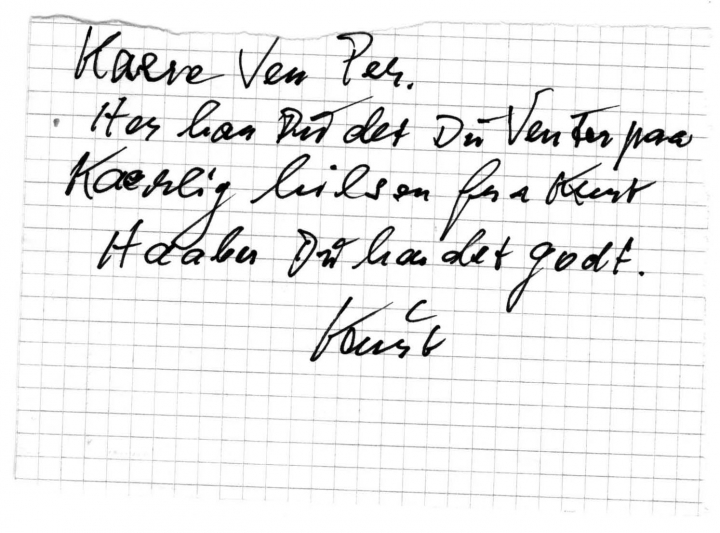 Kaere Ven Per.
Her har Du det Du Venter paa
Kaerlig hilsen fra Kurt
Haaber Du har det godt.
Kurt